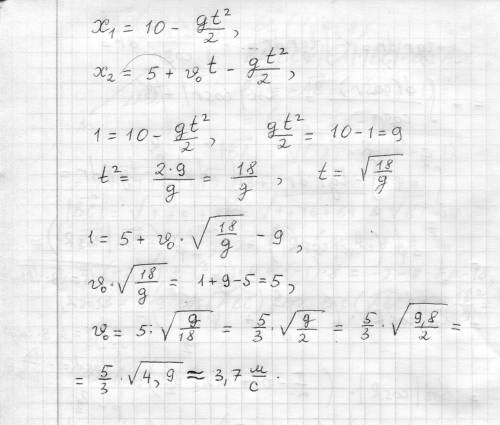 x₁ = 10 − gt²/2,
x₂ = 5 + v₀t − gt²/2,
1 = 10 − gt²/2, gt²/2 = 10−1 = 9
t² = 2·9/g = 18/g, t = √(18/g)
1 = 5 + v₀·√(18/g) − 9,
v₀·√(18/g) = 1+9−5=5,
v₀ = 5·√(g/18) = 5/3·√(g/2) = 5/3·√(9,8/2) =
= 5/3·√4,9 ≈ 3,7 м/с.